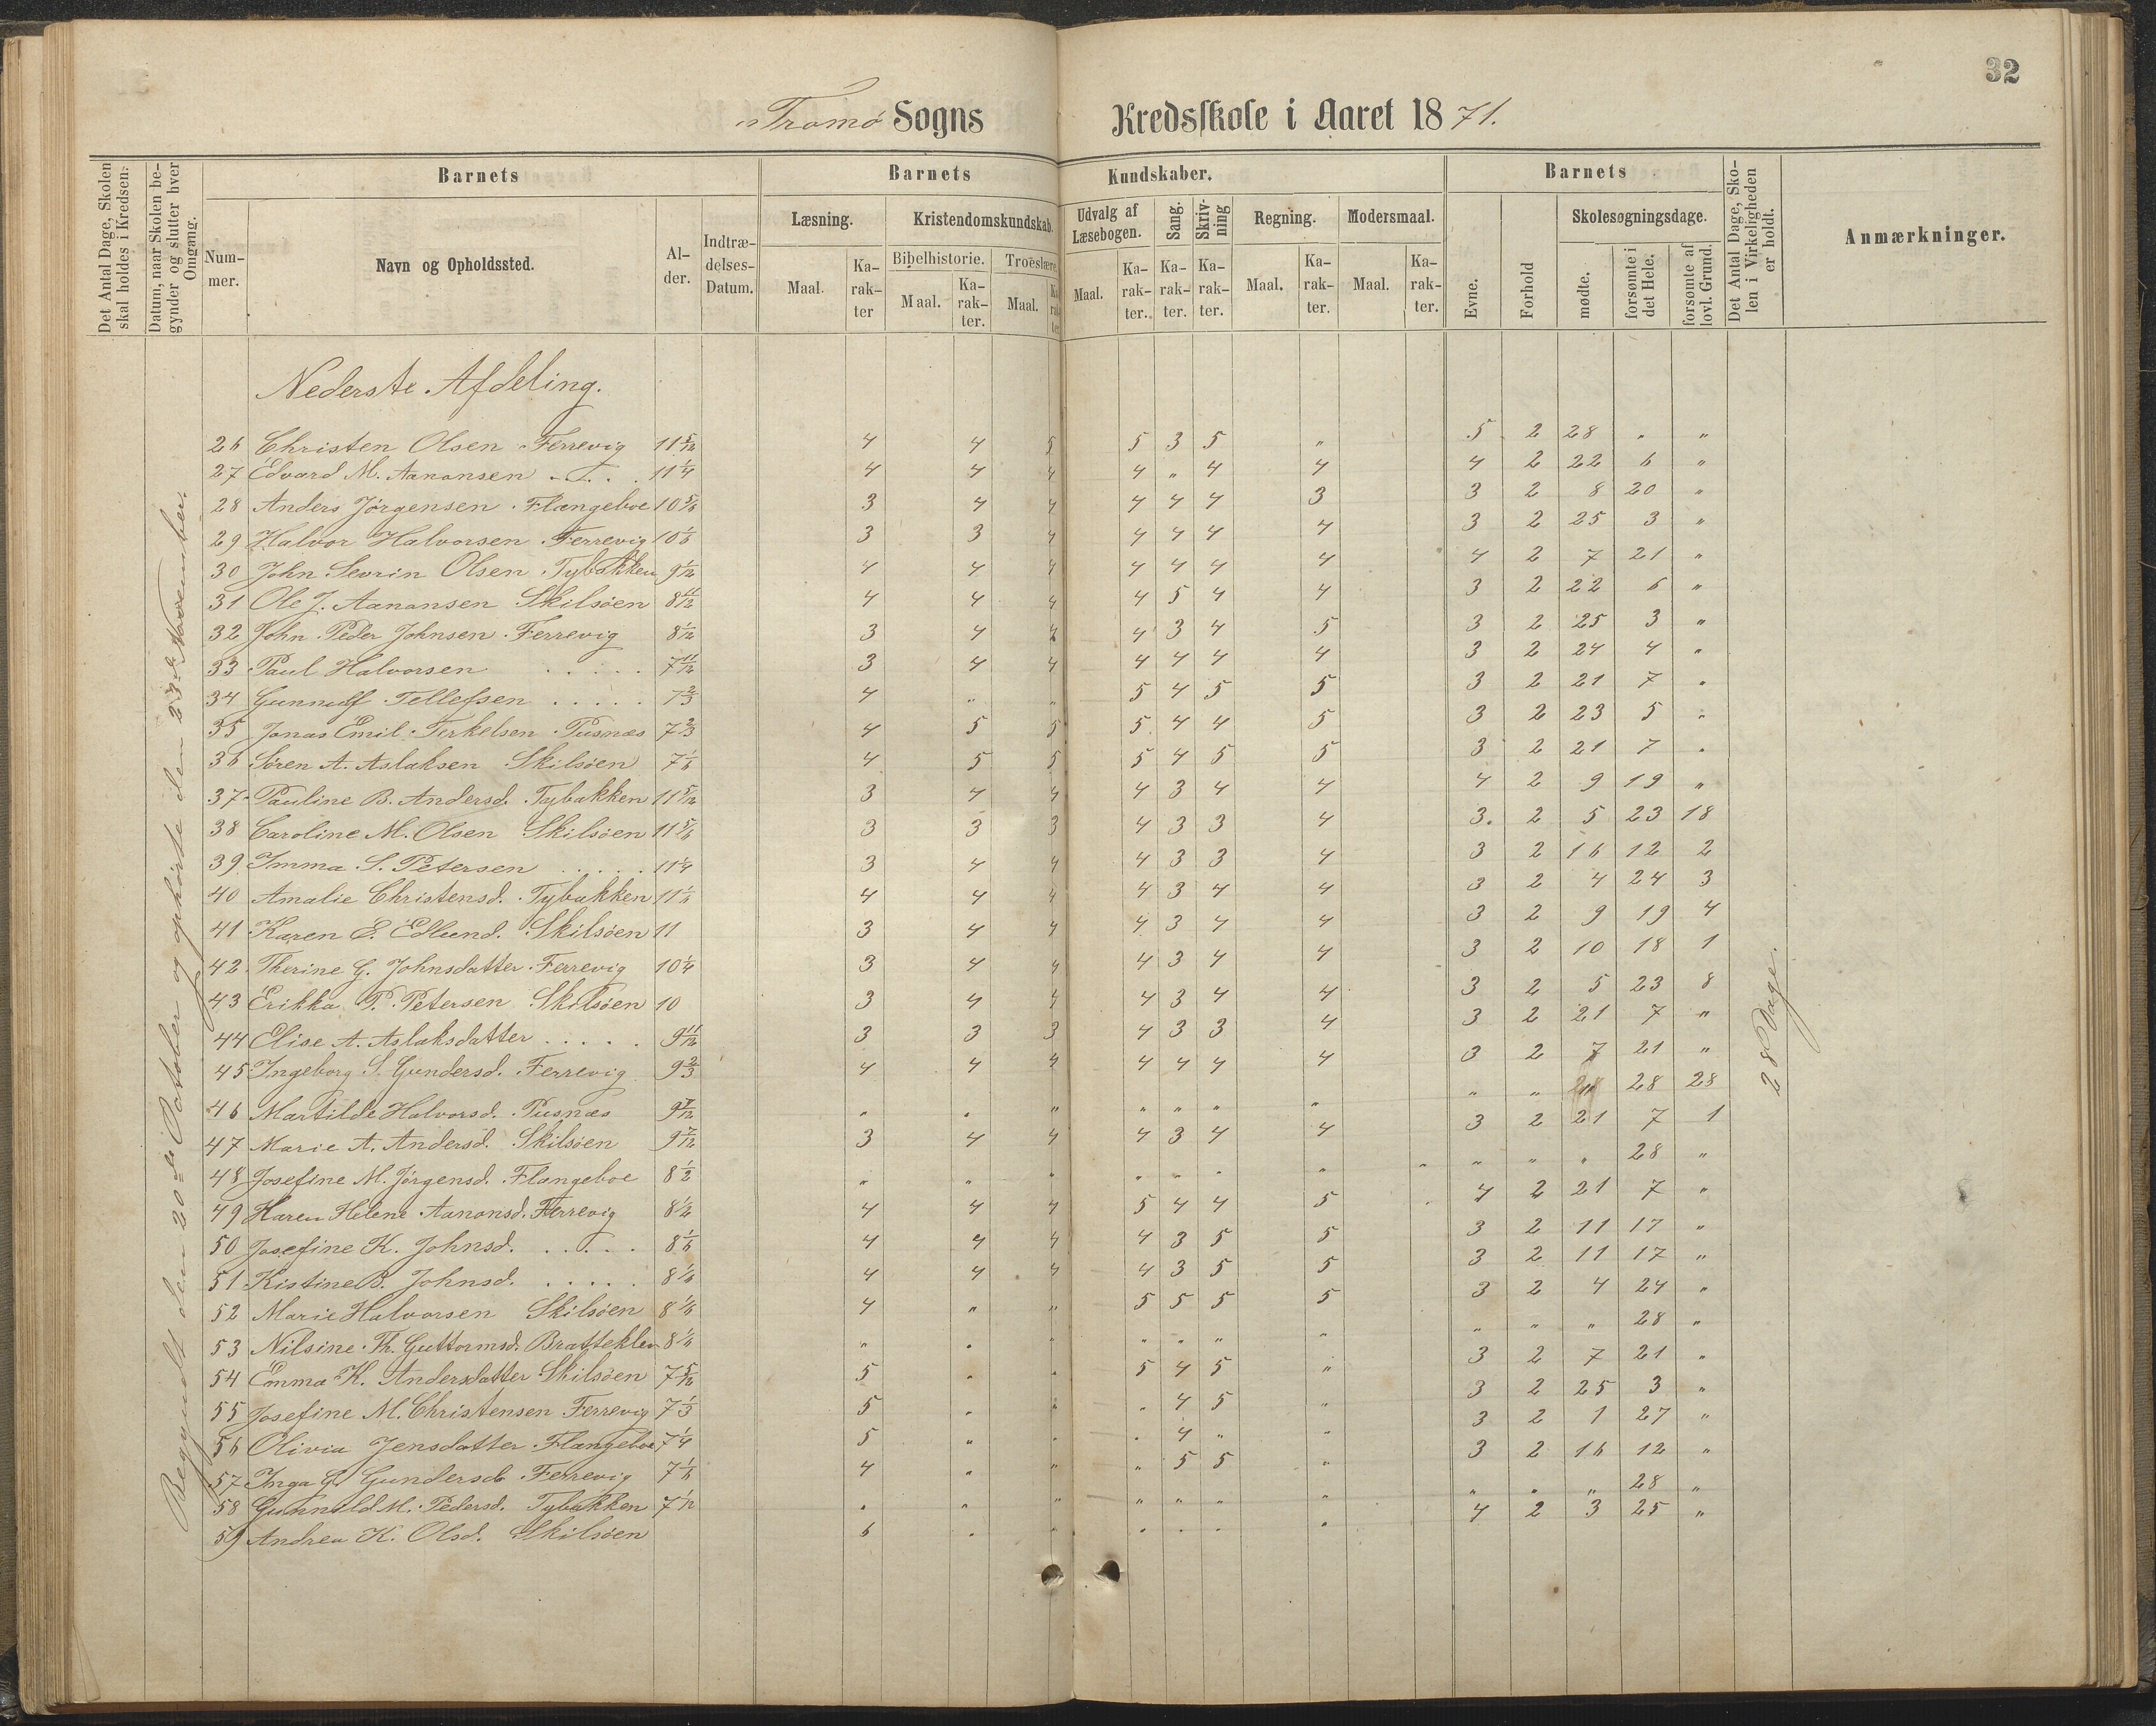 32
Tromø Sogns Kredsskole i Aaret 1871.
Det Antal Dage, Skolen skal holdes i Kredsen:
Datum, naar Skolen begynder og slutter hver Omgang.
Barnets
Nummer.
Navn og Opholdssted.
Alder.
Indtrædelses-Datum.
Barnets Kundskaber.
Læsning.
Maal.
Karakter
Kristendomskundskab.
Bibelhistorie.
Maal.
Karakter.
Troeslære.
Maal.
Karakter.
Udvalg af Læsebogen.
Maal.
Karakter.
Sang.
Karakter.
Skrivning
Karakter.
Regning.
Maal.
Karakter.
Modersmaal.
Maal.
Karakter.
Barnets
Evne.
Forhold
Skolesøgningsdage.
mødte.
forsømte i det Hele.
forsømte af lovl. Grund.
Det Antal Dage, Skolen i Virkeligheden er holdt.
Anmærkninger.
Begyndt den 20de October og ophørte den 23de November.
Nederste Afdeling.
26 Christen Olsen Ferrevig 11 5/12 4 4 5 5 3 5 " 5 2 28 " "
27 Edvard M. Aanonsen - T. . . 11 1/4 4 4 4 4 " 4 4 4 2 22 6 "
28 Anders Jörgensen Flangeboe 10 5/6 3 4 4 4 4 4 3 3 2 8 20 "
29 Halvor Halvorsen Ferrevig 10 1/6 3 3 4 4 4 4 4 3 2 25 3 "
30 John Sevrin Olsen Tybakken 9 1/12 4 4 4 4 4 4 4 4 2 7 21 "
31 Ole J. Aanonsen Skilsöen 8 11/12 4 4 4 4 5 4 4 3 2 22 6 "
32 John Peder Johnsen Ferrevig 8 1/12 3 4 4 4 3 4 5 3 2 25 3 "
33 Paul Halvorsen . . . . . 7 11/12 3 4 4 4 4 4 4 3 2 24 4 "
34 Gunnulf Tellefsen . . . . . 7 2/3 4 " " 5 4 5 5 3 2 21 7 "
35 Jonas Emil Terkelsen Pusnæs 7 2/3 4 5 5 5 4 4 5 3 2 23 5 "
36 Sören A. Aslaksen Skilsöen 7 1/6 4 5 5 5 4 5 5 3 2 21 7 "
37 Pauline B. Andersd. Tybakken 11 5/12 3 4 4 4 3 4 4 4 2 9 19 "
38 Caroline M. Olsen Skilsöen 11 5/6 3 3 3 4 3 3 4 3 2 5 23 18
39 Imma S. Petersen . . . . . 11 1/4 3 4 4 4 3 3 4 3 2 16 12 2
40 Amalie Christensd. Tybakken 11 1/6 4 4 4 4 3 4 4 3 2 4 24 3
41 Karen E. Edlund. Skilsöen 11 3 4 4 4 3 4 4 3 2 9 19 4
42 Therine G. Johnsdatter Ferrevig 10 1/4 3 4 4 4 3 4 4 3 2 10 18 1
43 Erikka P. Petersen Skilsöen 10 3 4 4 4 3 4 4 3 2 5 23 8
44 Elise A. Aslaksdatter . . . . . 9 11/12 3 3 3 4 3 3 4 3 2 21 7 "
45 Ingeborg S. Gundersd. Ferrevig 9 2/3 4 4 4 4 4 4 4 3 2 7 21 "
46 Martilde Halvorsd. Pusnæs 9 7/12 " " " " " " " " " " 28 28
47 Marie A. Andersd. Skilsöen 9 7/12 3 4 4 4 3 4 4 3 2 21 7 1
48 Josefine M. Jörgensd. Flangeboe 8 1/2 " " " " " " " " " " " 28 "
49 Karen Helene Aanonsd. Ferrevig 8 1/2 4 4 4 5 4 4 5 4 2 21 7 "
50 Josefine K. Johnsd. . . . . . 8 1/6 4 4 4 4 3 5 5 3 2 11 17 "
51 Kistine B. Johnsd. . . . . . 8 1/6 4 4 4 4 3 5 5 3 2 11 17 "
52 Marie Halvorsen Skilsöen 8 1/6 4 " " 5 5 5 5 3 2 4 24 "
53 Nilsine Th. Guttormsd. Bratteklev 8 1/6 " " " " " " " " " " 28 "
54 Emma K. Andersdatter Skilsöen 7 5/12 5 " " 5 4 5 " 3 2 7 21 "
55 Josefine M. Christensen Ferrevig 7 1/3 5 " " " 4 5 " 3 2 25 3 "
56 Olivia Jensdatter Flangeboe 7 1/4 5 " " " 4 " " 3 2 1 27 "
57 Inga G. Gundersd. Ferrevig 7 1/6 4 " " " 5 5 " 3 2 16 12 "
58 Gunnild M. Pedersd. Tybakken 7 1/12 " " " " " " " " " " 28 "
59 Andrea K. Olsd. Skilsöen 6 " " " " " " 4 2 3 25 "
28 Dage.